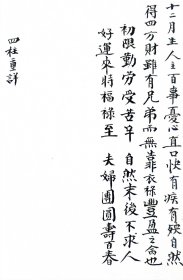 十二月生人主百事憂心直口快有疾有殃自然
得四方財雖有兄弟而無靠衣祿豐盈之命也
初限勤劳受苦辛　自然末後不求人
好運來時福祿至　夫婦團圓壽百春
四柱重詳